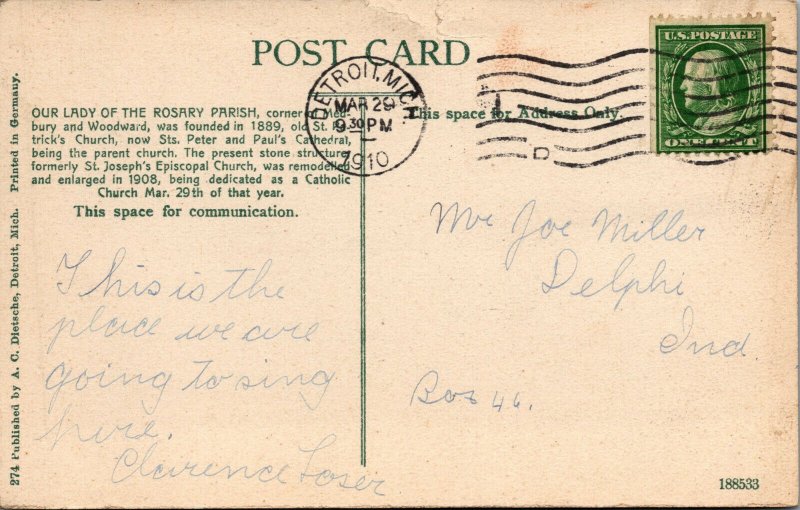 POST CARD
DETROIT, MICH.
MAR 29
9 30 PM
1910
U.S. POSTAGE
ONE CENT
OUR LADY OF THE ROSARY PARISH, corner of Med-
bury and Woodward, was founded in 1889, old St. Pa-
trick's Church, now Sts. Peter and Paul's Cathedral,
being the parent church. The present stone structure
formerly St. Joseph's Episcopal Church, was remodeled
and enlarged in 1908, being dedicated as a Catholic
Church Mar. 29th of that year.
This space for communication.
This space for Address Only.
This is the
place we are
going to sing
here.
Clarence Loser
Mr Joe Miller
Delphi
Ind.
Box 46.
274 Published by A. C. Dietsche, Detroit, Mich. Printed in Germany.
188533